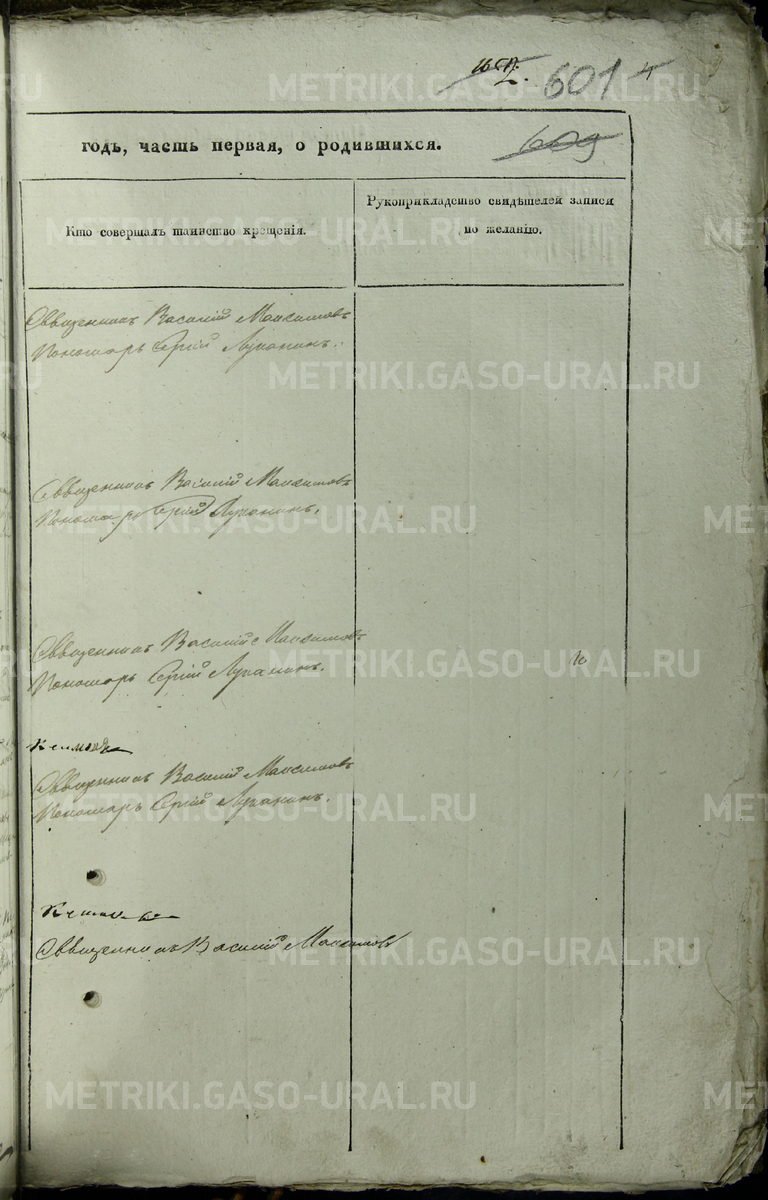 2. 601 4
609
годъ, часть первая, о родившихся.
Кто совершалъ таинство крещенія.
Рукоприкладство свидѣтелей записи
по желанію.
Священникъ Василій Максимовъ
Пономарь Сергій Луканинъ.
Священникъ Василій Максимовъ
Пономарь Сергій Луканинъ.
Священникъ Василій Максимовъ
Пономарь Сергій Луканинъ.
Священникъ Василій Максимовъ
Пономарь Сергій Луканинъ.
Священникъ Василій Максимовъ
METRIKI.GASO-URAL.RU